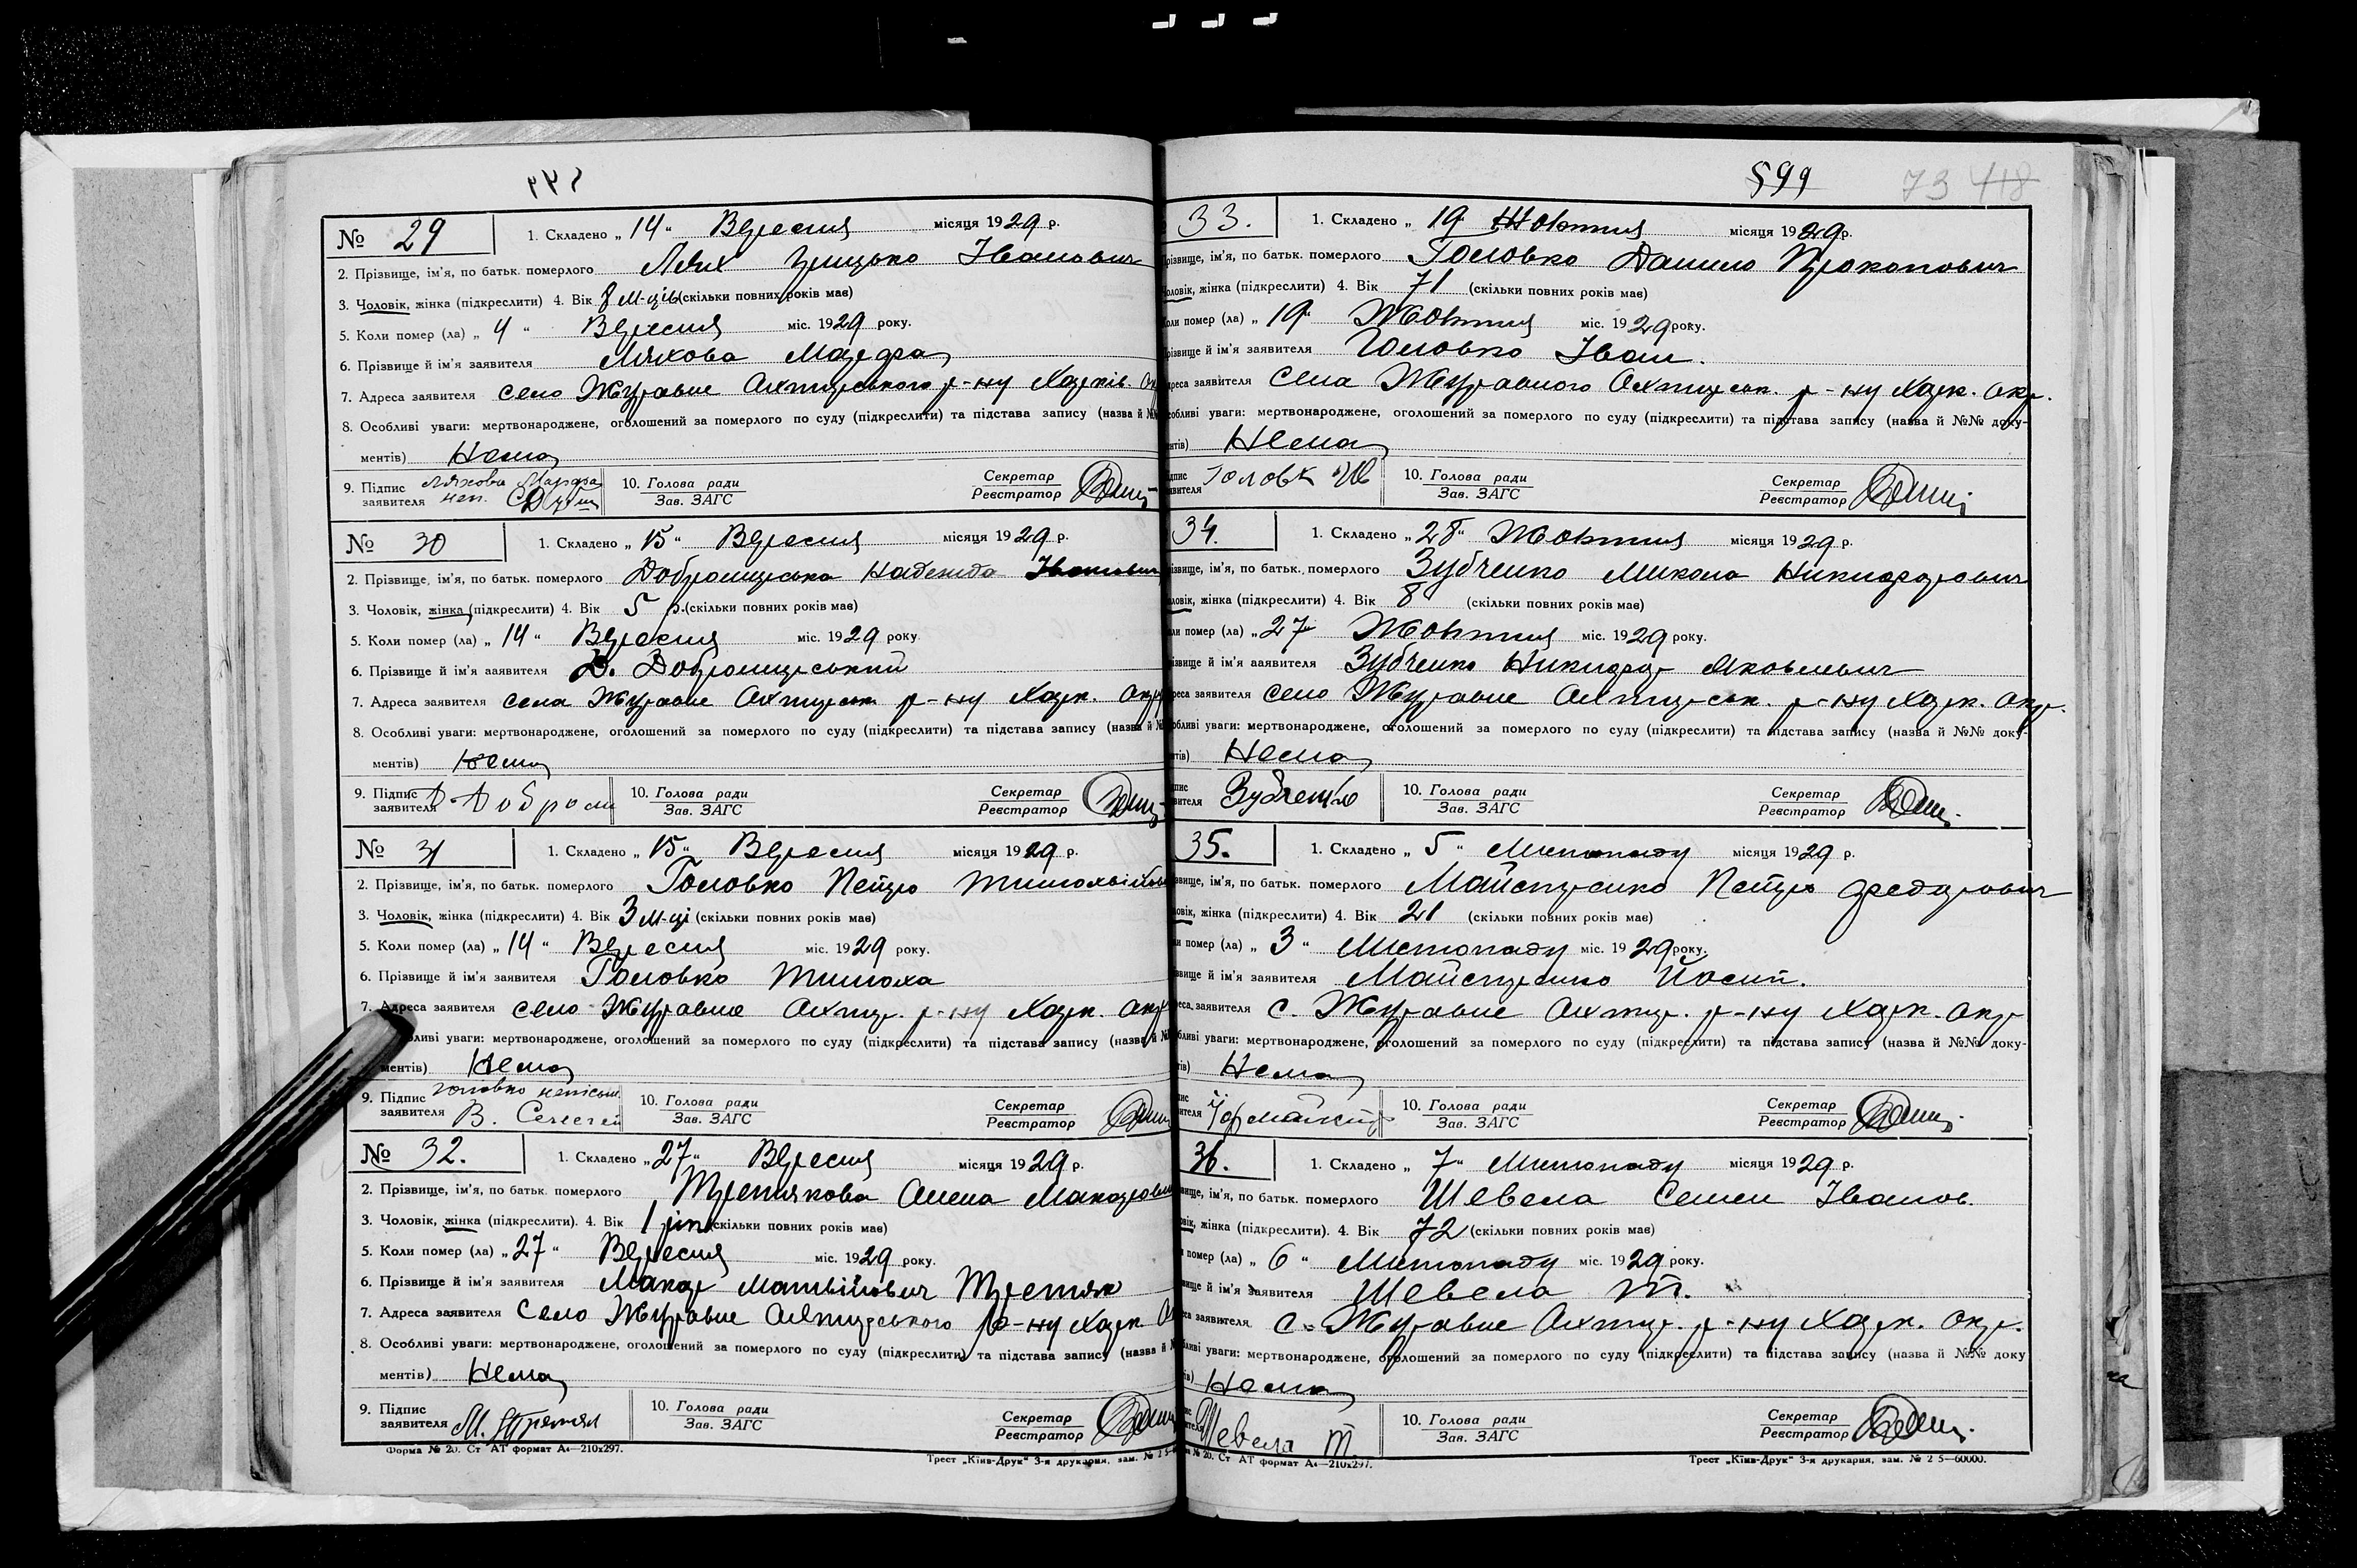 № 29 1. Складено „14“ Вересня місяця 1929 р.
2. Прізвище, ім'я, по батьк. померлого Лях Грицько Іванович
3. Чоловік, жінка (підкреслити) 4. Вік 8 м-ців (скільки повних років має)
5. Коли помер (ла) „4“ Вересня міс. 1929 року.
6. Прізвище й ім'я заявителя Ляхова Марфа
7. Адреса заявителя село Журавне Ахтирського р-ну Харків.
8. Особливі уваги: мертвонароджене, оголошений за померлого по суду (підкреслити) та підстава запису (назва й №
ментів) Нема
9. Підпис заявителя Ляхова Марфа неп. 10. Голова ради Зав. ЗАГС Секретар Реєстратор
№ 30 1. Складено „15“ Вересня місяця 1929 р.
2. Прізвище, ім'я, по батьк. померлого Доброницька Надежда Іванівн
3. Чоловік, жінка (підкреслити) 4. Вік 5 р. (скільки повних років має)
5. Коли помер (ла) „14“ Вересня міс. 1929 року.
6. Прізвище й ім'я заявителя Д.
7. Адреса заявителя села Журавне Ахтирськ р-ну Харк. Окр
8. Особливі уваги: мертвонароджене, оголошений за померлого по суду (підкреслити) та підстава запису (назва й №
ментів) Нема
9. Підпис заявителя 10. Голова ради Зав. ЗАГС Секретар Реєстратор
№ 31 1. Складено „15“ Вересня місяця 1929 р.
2. Прізвище, ім'я, по батьк. померлого Головко Петро
3. Чоловік, жінка (підкреслити) 4. Вік 3 м-ці (скільки повних років має)
5. Коли помер (ла) „14“ Вересня міс. 1929 року.
6. Прізвище й ім'я заявителя Головко Тимоха
7. Адреса заявителя село Журавне Ахтир. р-ну Харк. Окр
ливі уваги: мертвонароджене, оголошений за померлого по суду (підкреслити) та підстава запису (назва й №
ментів) Нема
9. Підпис заявителя Головко неписьм. В. 10. Голова ради Зав. ЗАГС Секретар Реєстратор
№ 32. 1. Складено „27“ Вересня місяця 1929 р.
2. Прізвище, ім'я, по батьк. померлого Третякова Олена Макаровн
3. Чоловік, жінка (підкреслити). 4. Вік 1 рік (скільки повних років має)
5. Коли помер (ла) „27“ Вересня міс. 1929 року.
6. Прізвище й ім'я заявителя Макар Матвійович Третяк
7. Адреса заявителя Село Журавне Ахтирського р-ну Харк
8. Особливі уваги: мертвонароджене, оголошений за померлого по суду (підкреслити) та підстава запису (назва й №
ментів) Нема
9. Підпис заявителя М. Третяк 10. Голова ради Зав. ЗАГС Секретар Реєстратор
Форма № 20. Ст АТ формат А4—210х297.
Трест „Київ-Друк“ 3-я друкарня, зам. № 2 5
599 73 418
33. 1. Складено „19“ Жовтня місяця 1929 р.
різвище, ім'я, по батьк. померлого Головко Данило Прокопович
оловік, жінка (підкреслити) 4. Вік 71 (скільки повних років має)
оли помер (ла) „19“ Жовтня міс. 1929 року.
різвище й ім'я заявителя Головко Іван.
дреса заявителя села Журавного Ахтирськ. р-ну Харк. окр.
собливі уваги: мертвонароджене, оголошений за померлого по суду (підкреслити) та підстава запису (назва й №№ доку-
нтів) Нема
дпис явителя Головк Ив 10. Голова ради Зав. ЗАГС Секретар Реєстратор
34. 1. Складено „28“ Жовтня місяця 1929 р.
ізвище, ім'я, по батьк. померлого Зубченко Микола Никифорович
ловік, жінка (підкреслити) 4. Вік 8 (скільки повних років має)
ли помер (ла) „27“ Жовтня міс. 1929 року.
ізвище й ім'я заявителя Зубченко Никифор Яковлевич
реса заявителя село Журавне Ахтирськ. р-ну Харк. окр.
обливі уваги: мертвонароджене, оголошений за померлого по суду (підкреслити) та підстава запису (назва й №№ доку-
нтів) Нема
пис вителя Зубченко 10. Голова ради Зав. ЗАГС Секретар Реєстратор
35. 1. Складено „5“ Листопаду місяця 1929 р.
звище, ім'я, по батьк. померлого Майстренко Петро Федорович
овік, жінка (підкреслити) 4. Вік 21 (скільки повних років має)
и помер (ла) „3“ Листопаду міс. 1929 року.
звище й ім'я заявителя Майстренко Йосип.
еса заявителя с. Журавне Ахтир. р-ну Харк. окр
бливі уваги: мертвонароджене, оголошений за померлого по суду (підкреслити) та підстава запису (назва й №№ доку-
тів) Нема
пис ителя 10. Голова ради Зав. ЗАГС Секретар Реєстратор
36. 1. Складено „7“ Листопаду місяця 1929 р.
вище, ім'я, по батьк. померлого Шевела Семен Іванов.
овік, жінка (підкреслити). 4. Вік 72 (скільки повних років має)
и помер (ла) „6“ Листопаду міс. 1929 року.
вище й ім'я заявителя Шевела Т.
са заявителя с. Журавне Ахтир. р-ну Харк. окр.
бливі уваги: мертвонароджене, оголошений за померлого по суду (підкреслити) та підстава запису (назва й №№ доку
ів) Нема
Шевела Т. 10. Голова ради Зав. ЗАГС Секретар Реєстратор
№ 20. Ст АТ формат А4—210х297.
Трест „Київ-Друк“ 3-я друкарня, зам. № 2 5—60000.